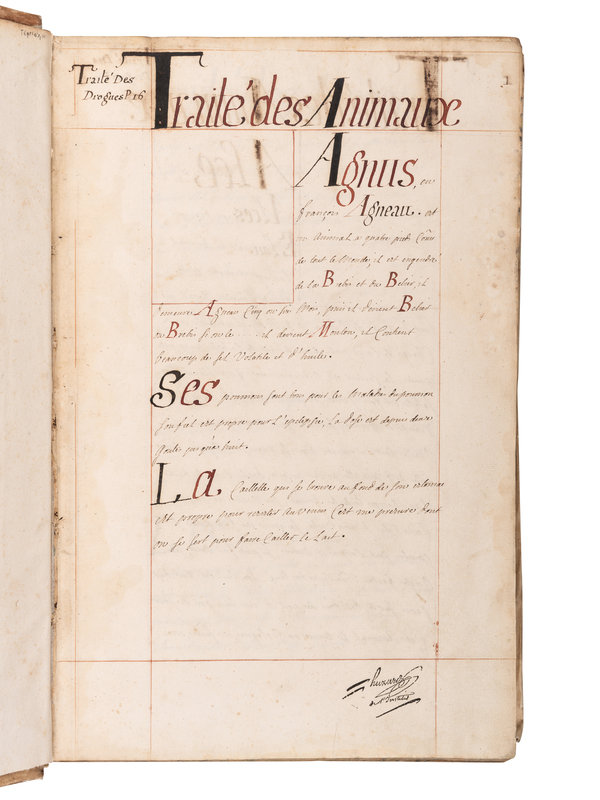 Traité Des
Drogues P. 16
1
Traité des Animaux
Agnus, en
françois Agneau. est
un Animal a quatre pieds Connu
de tout le Monde, il est engendré
de la Brebi et du Belier, il
demeure Agneau Cinq ou six Mois, puis il devient Belier
ou Brebi si on le il devient Mouton, il Contient
beaucoup de sel Volatile et d'huile.
Ses poumons sont bons pour les Maladies du poumon
son fiel est propre pour L'epilepsie, La dose est depuis deux
Goutes jusqu'a huit.
La Caillette qui se trouve au fond de son estomac
est propre pour resister au venin C'est une presure dont
on se sert pour faire Cailler le Lait.
huzard